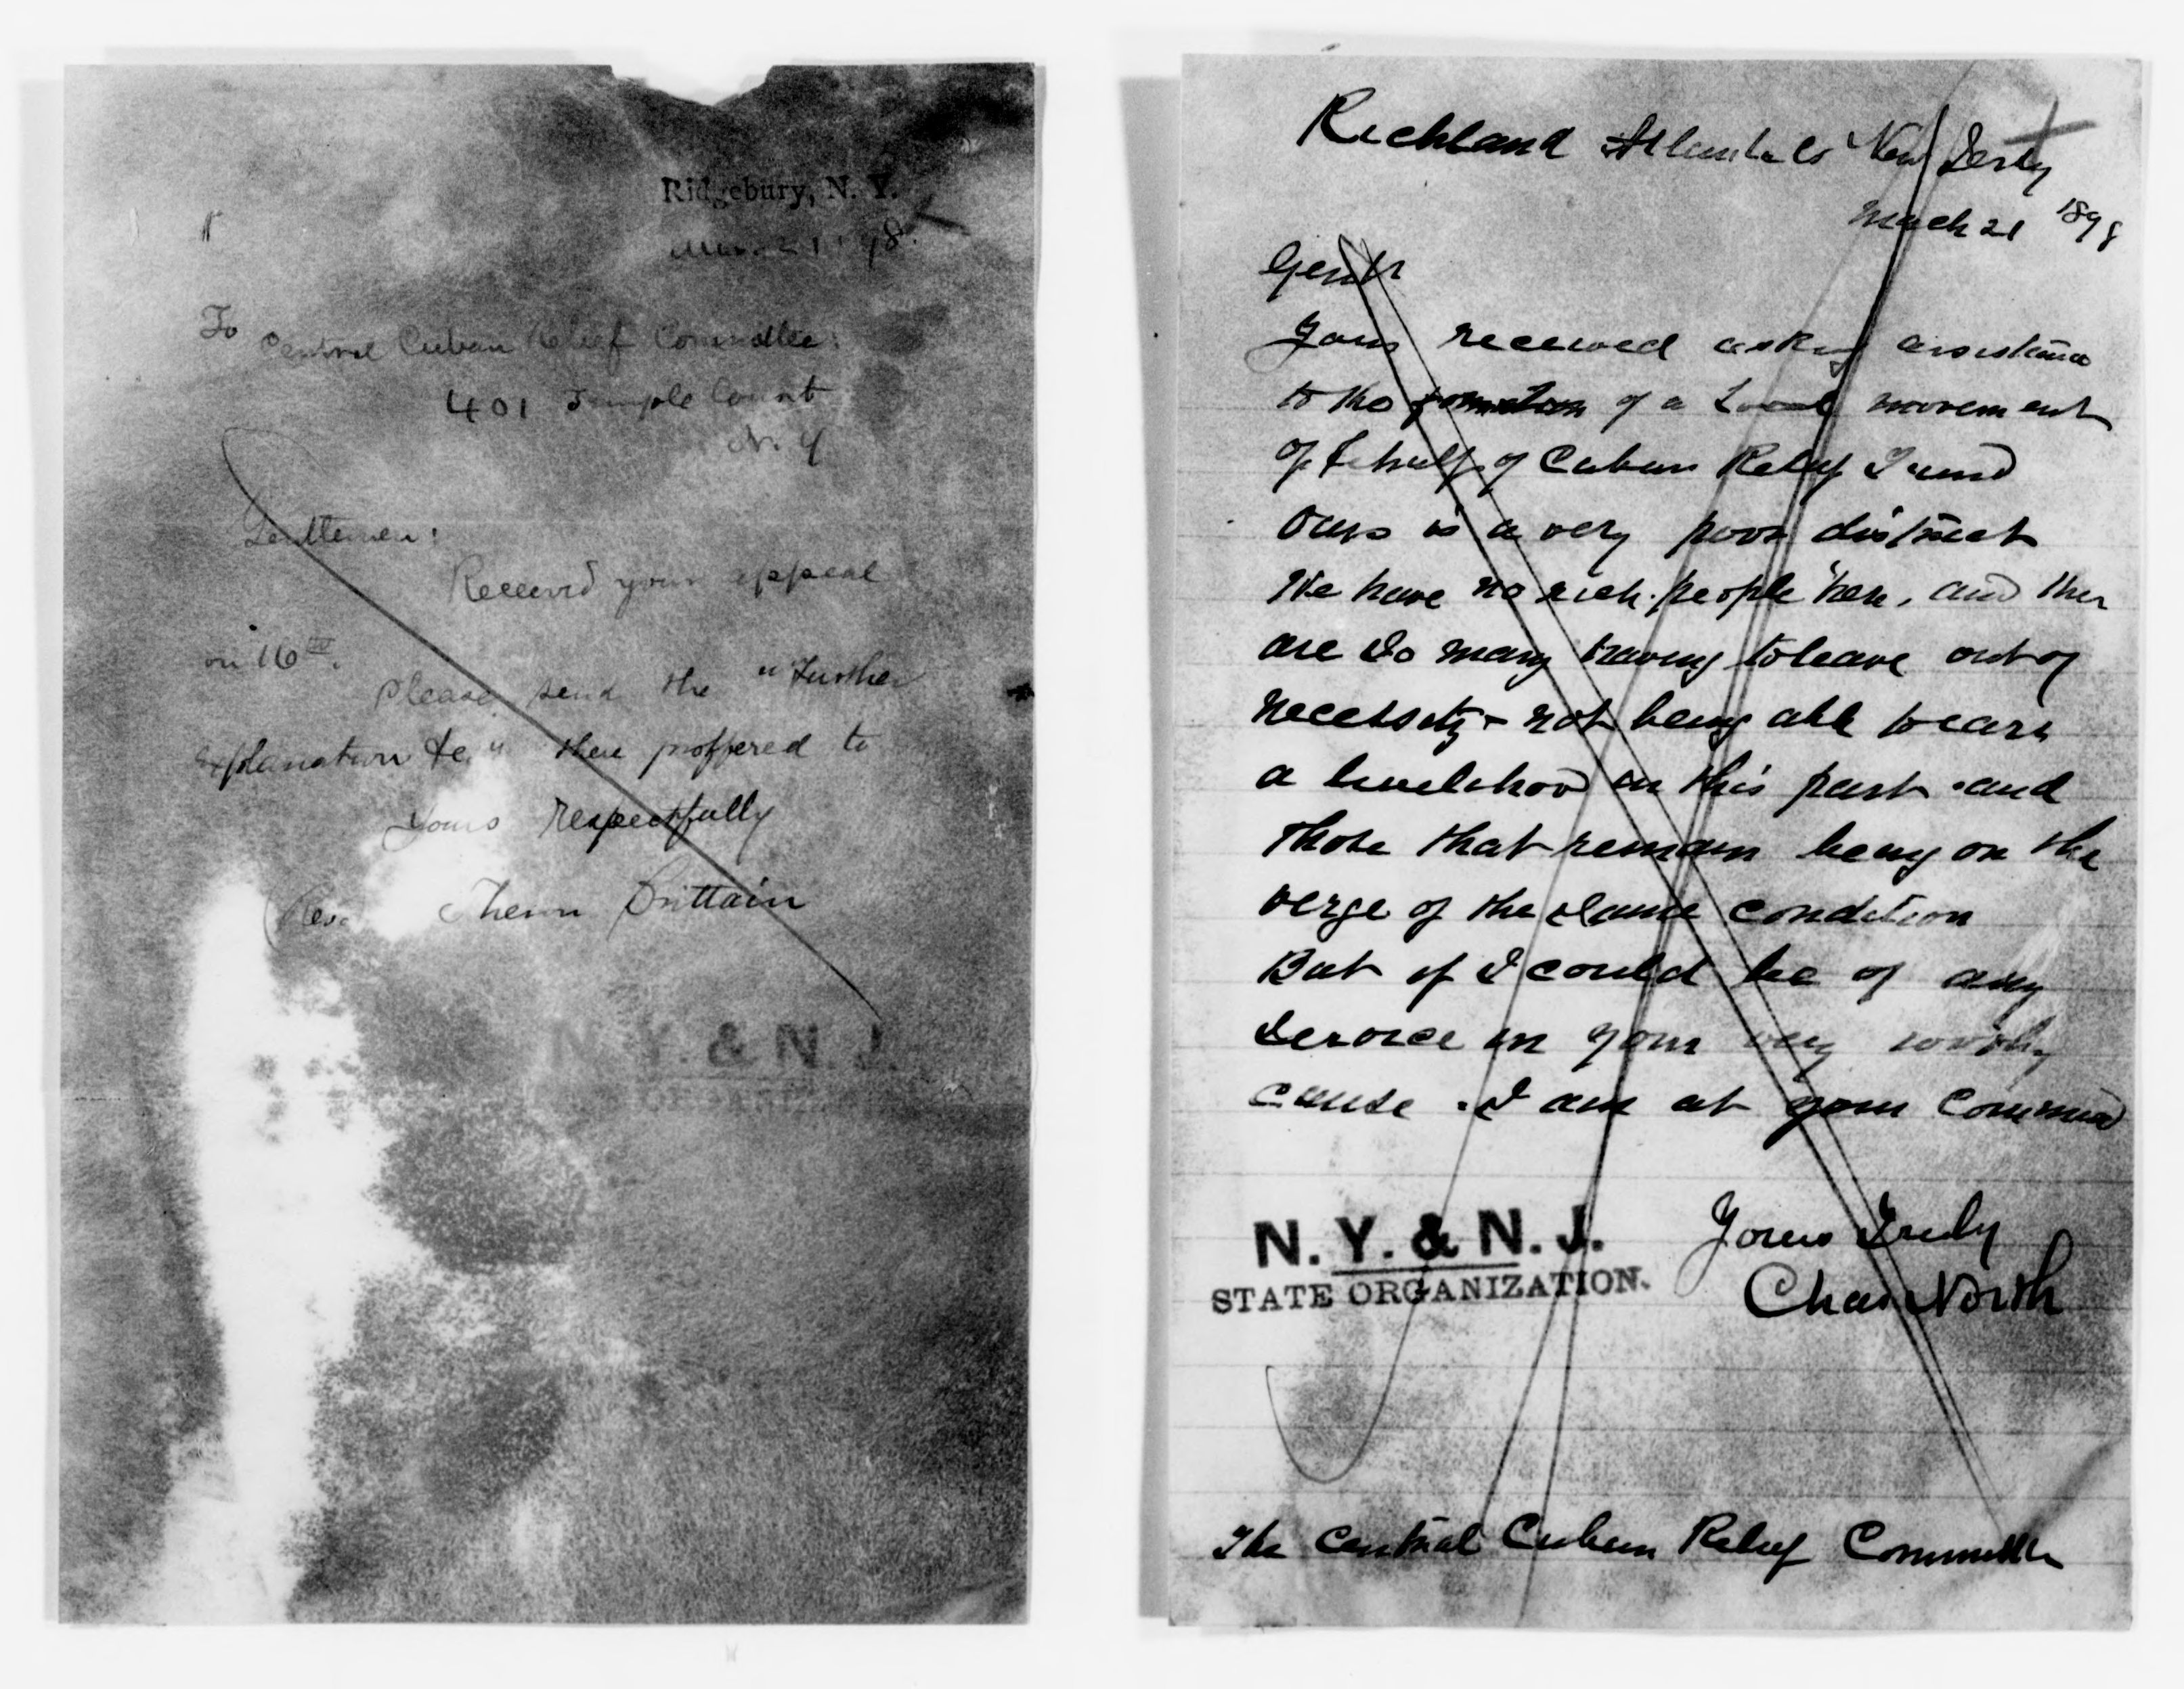 Ridgebury, N. Y.
Mar. 21 '98.
To Central Cuban Relief Committee:
401 Temple Court
N. Y
Gentlemen:
Received your appeal
on 16th.
Please send the "Further
Explanation &c." there proffered to
Yours respectfully
Rev. Brittain
N. Y. & N. J.
Richland Atlantic Co New Jersey
March 21 1898
Gents
Yours received asking assistance
to the formation of a Local movement
of behalf of Cuban Relief Fund
Ours is a very poor district
We have no rich people here, and ther
are so many having to leave out of
necessity - not being able to earn
a livelihood in this part and
those that remain being on the
verge of the same condition
But if I could be of any
service in your very worthy
cause . I am at your command
Yours Truly
Chas North
N. Y. & N. J.
STATE ORGANIZATION.
The Central Cuban Relief Committee